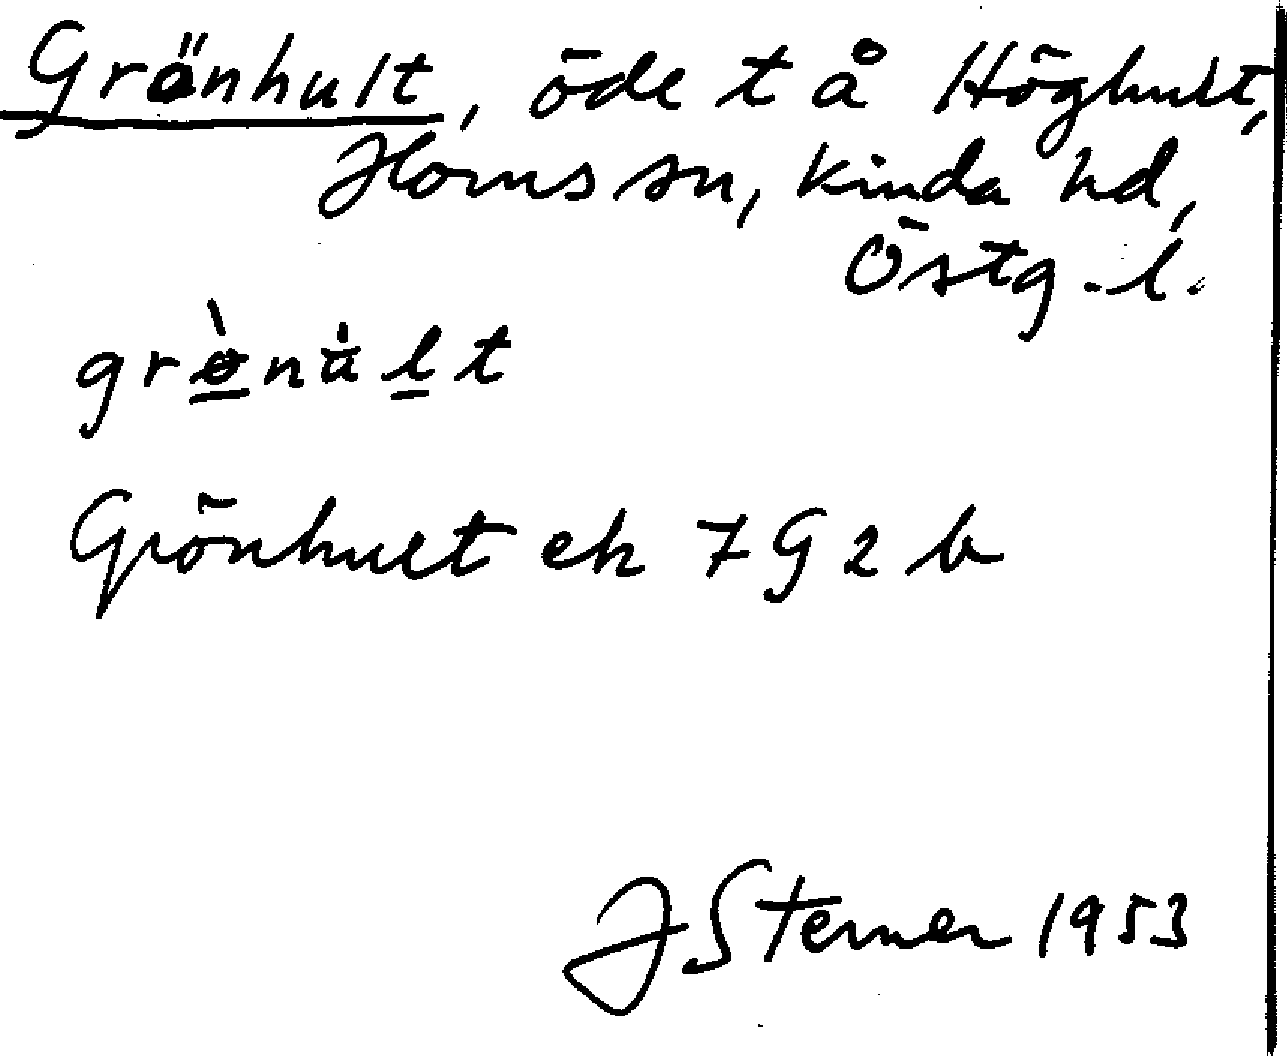 Grönhult, öde t å Höghult,
Horns sn, Kinda hd,
Östg. l.
grø̀nu̇lt
Grönhult ek 7G2b
J Sterner 1953